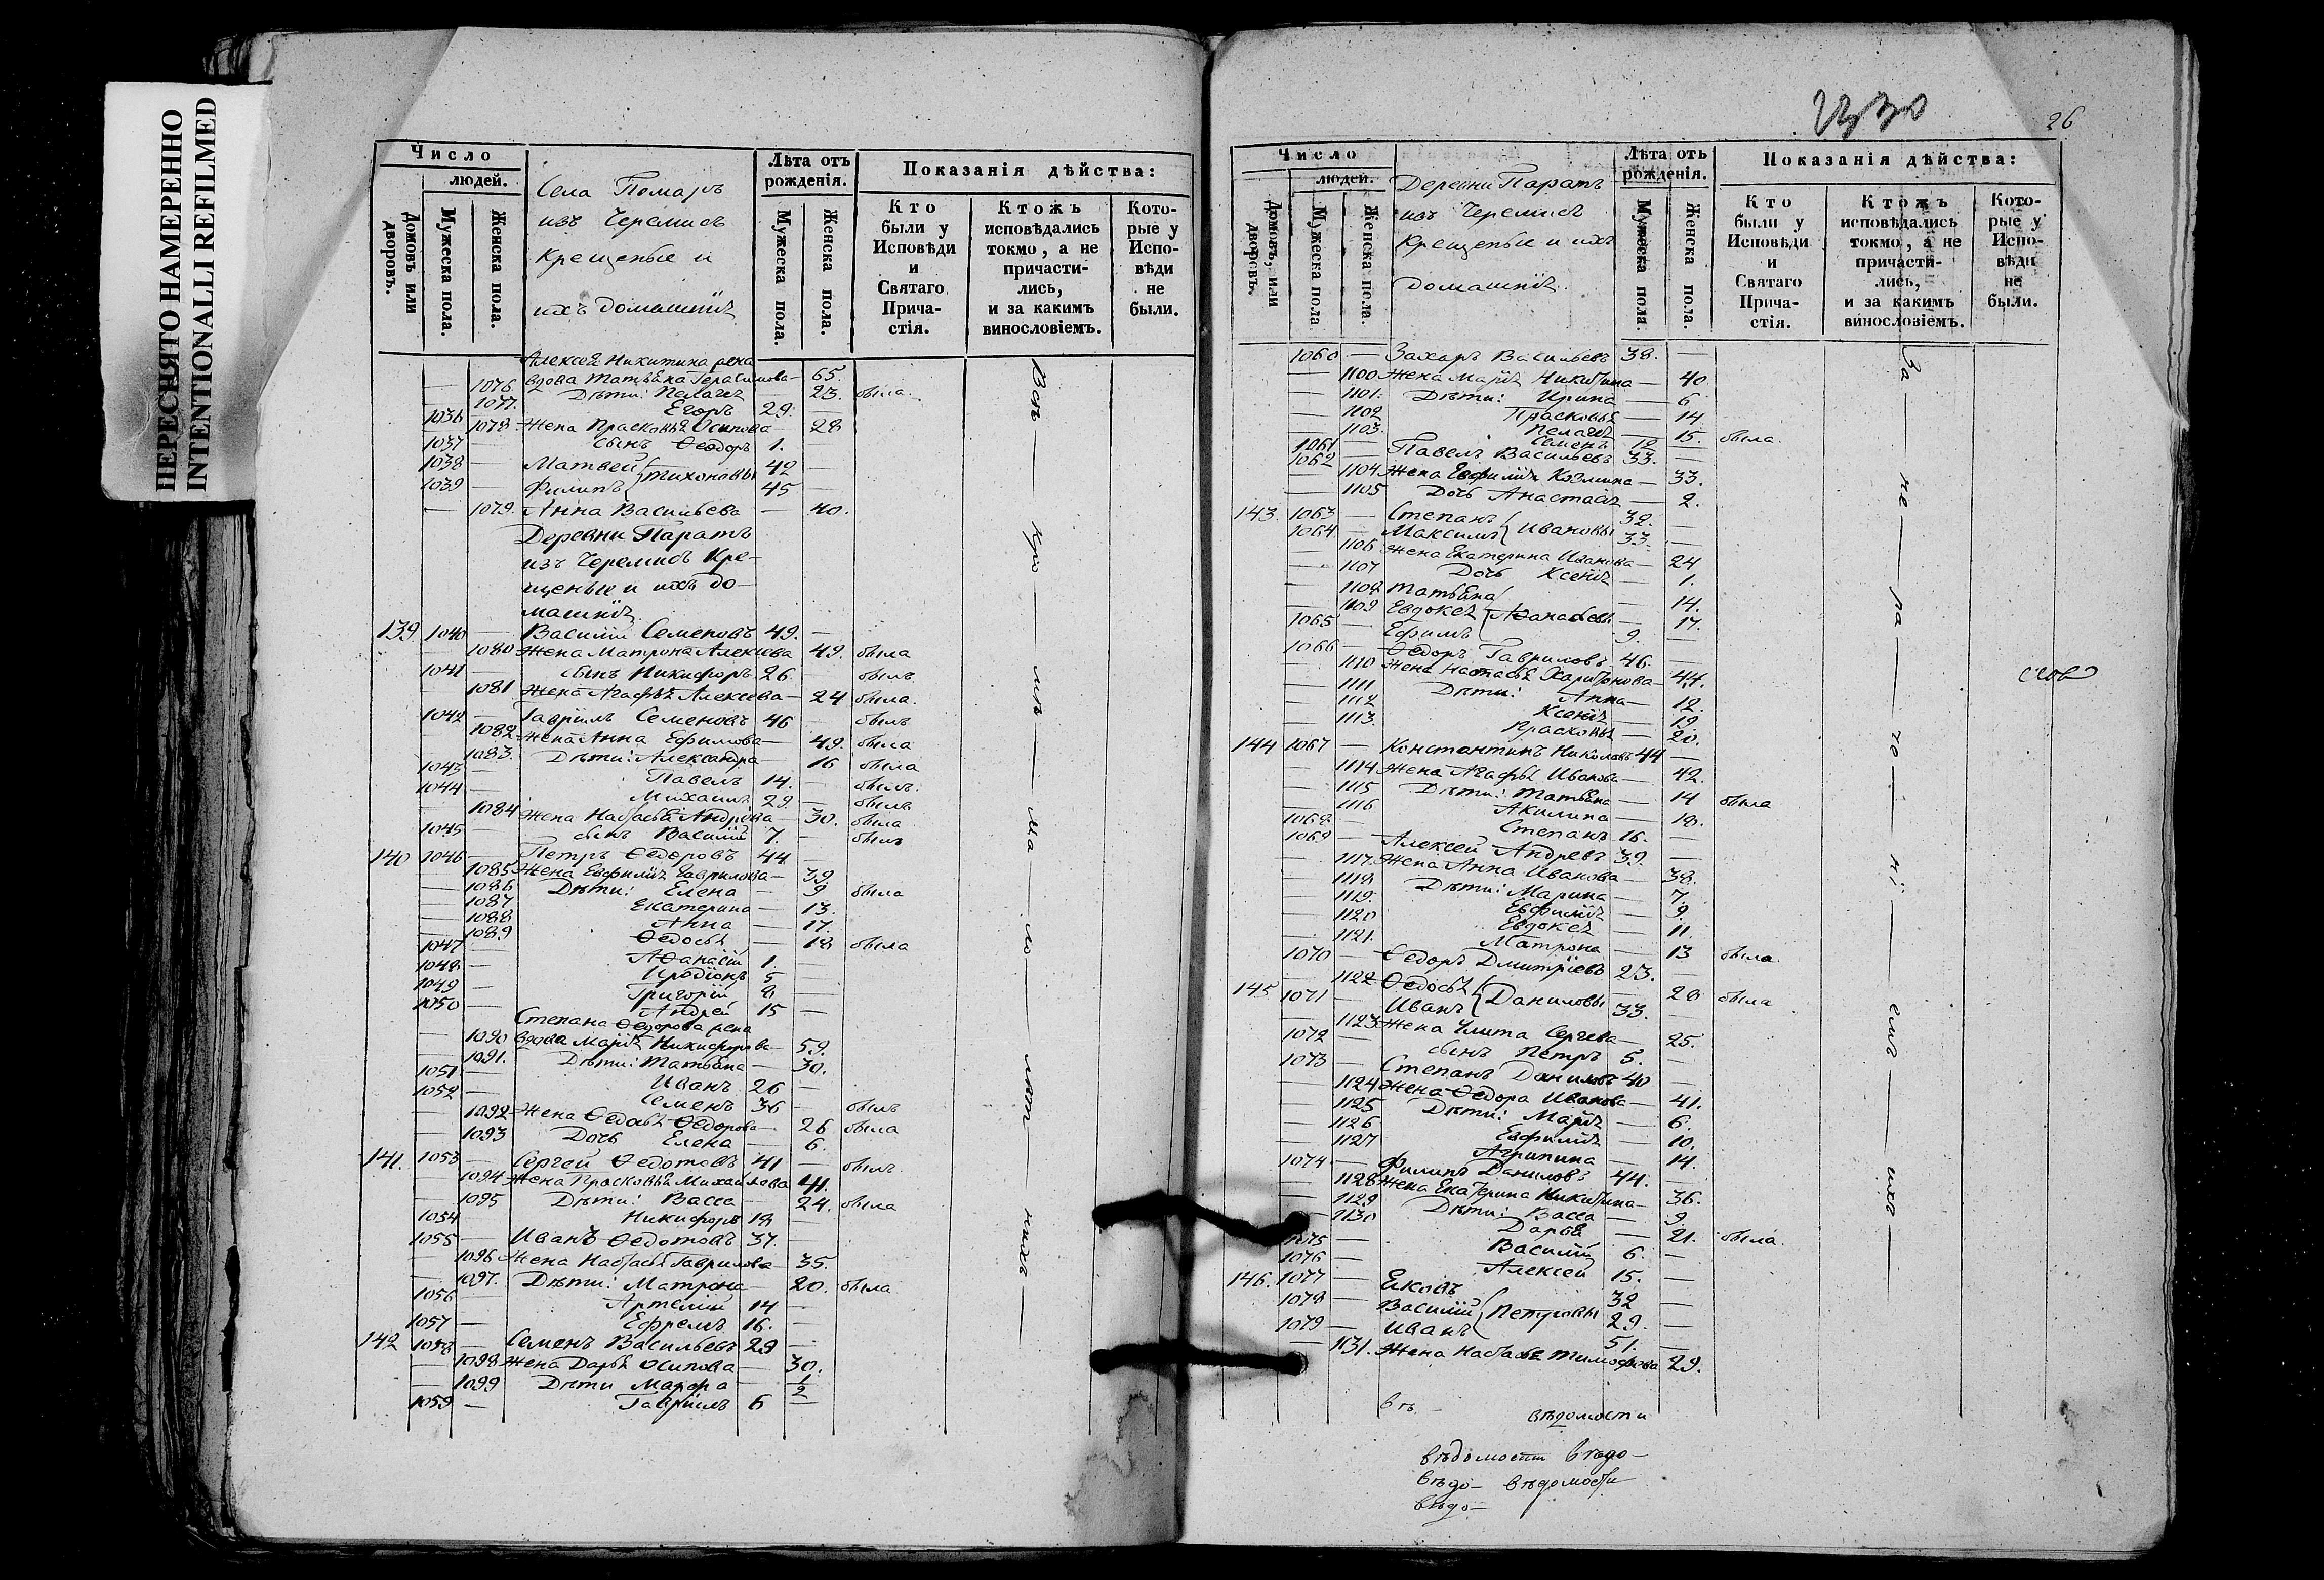 НЕРЕСНЯТО НАМЕРЕННО
INTENTIONALLI REFILMED
Число
людей.
Домовъ или дворовъ.
Мужеска пола.
Женска пола.
Села Помаръ
изъ Черемисъ
Крещеные и
ихъ домашнія
Лѣта отъ рожденія.
Мужеска пола.
Женска пола.
Показанія дѣйства:
Кто были у Исповѣди и Святаго Прича-стія.
Ктожъ исповѣдались токмо, а не причасти-лись, и за какимъ винословіемъ.
Кото-рые у Испо-вѣди не были.
Алексея Никитина жена
1076. вдова Татьяна Герасимова — 65.
1077. Дѣти: Пелагея — 23. была.
1036 — Егоръ 29.
1078. Жена Прасковья Осипова — 28
1037 — сынъ Ѳеодоръ 1.
1038 — Матвей 42 —
Тихоновы
1039 — Филипъ 45 —
1079. Анна Васильева — 40.
Деревни Паратъ
изъ Черемисъ Кре-
щеные и ихъ до-
машнія.
139 1040 — Василій Семеновъ 49. —
1080 Жена Матрона Алексѣева 49. была
1041 — сынъ Никифоръ 26 — былъ
1081 Жена Агафья Алексеева — 24 была.
1042 — Гавріилъ Семеновъ 46 — былъ
1082 Жена Анна Ефимова — 49. была
1083. Дѣти: Александра — 16 была
1043 — Павелъ 14. — былъ.
1044 — Михаилъ 29. — былъ
1084 Жена Настасья Андріева — 30. была
1045 — сынъ Василій 7. — былъ
140 1046 — Петръ Ѳедоровъ 44 —
1085 Жена Евфимія Гаврилова — 39
1086 Дѣти: Елена — 9 была
1087 Екатерина — 13.
1088 Анна — 17.
1089 Ѳедосья — 18 была
1047 — Аѳанасій 1. —
1048 — Иродіонъ 5 —
1049 — Григорій 8 —
1050 — Андрей 15 —
Степана Ѳедорова жена
1090 вдова Марія Никифорова — 59.
1091. Дѣти: Татьяна — 30.
1051 — Иванъ 26 —
1052 — Семенъ 36 — былъ
1092 Жена Ѳедосья Ѳедорова — 26 была
1093 Дочь Елена — 6.
141. 1053 — Сергей Ѳедотовъ 41 — былъ.
1094 Жена Прасковья Михайлова 41.
1095 Дѣти: Васса — 24. была
1054 — Никифоръ 18 —
1055 — Иванъ Ѳедотовъ 37. —
1096 Жена Настасья Гаврилова — 35.
1097. Дѣти: Матрона — 20. была
1056 — Артемій 14 —
1057 — Ефремъ 16. —
142 1058 — Семенъ Васильевъ 29 —
1098 Жена Дарья Осипова — 30.
1099 Дѣти Марфа — 1/2
1059 — Гавріилъ 6 —
26
Число
людей.
Домовъ, или дворовъ.
Мужеска пола
Женска пола.
Деревни Паратъ
изъ Черемисъ
Крещеные и ихъ
домашнія.
Лѣта отъ рожденія.
Мужеска пола.
Женска пола.
Показанія дѣйства:
Кто были у Исповѣди и Святаго Прича-стія.
Ктожъ исповѣдались токмо, а не причасти-лись, и за какимъ винословіемъ.
Кото-рые у Испо-вѣди не были.
1060 — Захаръ Васильевъ 38. —
1100 Жена Марія Никитина — 40
1101. Дѣти: Ирина — 6
1102 Прасковья — 14
1103. Пелагея — 15. была
1061 — Семенъ 12 —
1062 — Павелъ Васильевъ 33. —
1104 Жена Евфимія Козмина — 33.
1105 Дочь Анастасія — 2.
143. 1063 — Степанъ 32. —
Ивановы
1064 — Максимъ 33. —
1106 Жена Екатерина Иванова — 24
1107 Дочь Ксенія — 1.
1108 Татьяна — 14.
1109 Евдокея Аѳанасьевы — 17.
1065 — Ефимъ 9. —
1066 — Ѳедоръ Гавриловъ 46. —
1110 Жена Настасья Харитонова — 44.
1111 Дѣти: Анна — 12.
1112 Ксенія — 19
1113. Прасковья — 20.
144 1067 — Константинъ Николаевъ 44 —
1114 Жена Агафья Иванова — 42.
1115 Дѣти: Татьяна — 14 была
1116 Акилина — 18.
1068 — Степанъ 16. —
1069 — Алексей Андревъ 39. —
1117. Жена Анна Иванова — 38.
1118 Дѣти: Марина — 7.
1119. Евфимія — 9.
1120 Евдокея — 11.
1121. Матрона — 13 была.
1070 — Ѳедоръ Дмитріевъ 23. —
1122 Ѳедосья — 28 была
Даниловы
145 1071 — Иванъ 33. —
1123 Жена Улита Сергева — 25.
1072 — сынъ Петръ 5. —
1073 — Степанъ Даниловъ 40 —
1124 Жена Ѳедора Иванова — 41.
1125 Дѣти: Марія — 6.
1126 Евфимія — 10.
1127 Агрипина — 14.
1074 — Филипъ Даниловъ 44. —
1128 Жена Екатерина Никитина — 36.
1129 Дѣти: Васса — 9.
1130 Дарья — 21. была.
1075 — Василій 6. —
1076 — Алексей 15. —
146. 1077 — Яковъ 32 —
1078 — Василій Петровы 29. —
1079 — Иванъ 51. —
1131. Жена Настасья Тимофеева 29.
въ — вѣдомости
вѣдомости вѣдо-
вѣдо- вѣдомости
вѣдо-